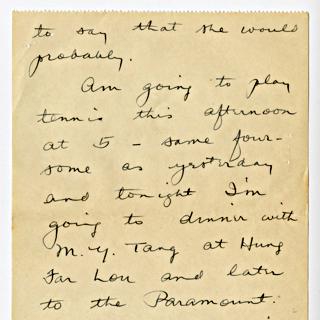 to say that she would
probably.
Am going to play
tennis this afternoon
at 5 - same four-
some as yesterday
and tonight I'm
going to dinner with
M. Y. Tang at Hung
Far Lou and later
to the Paramount.